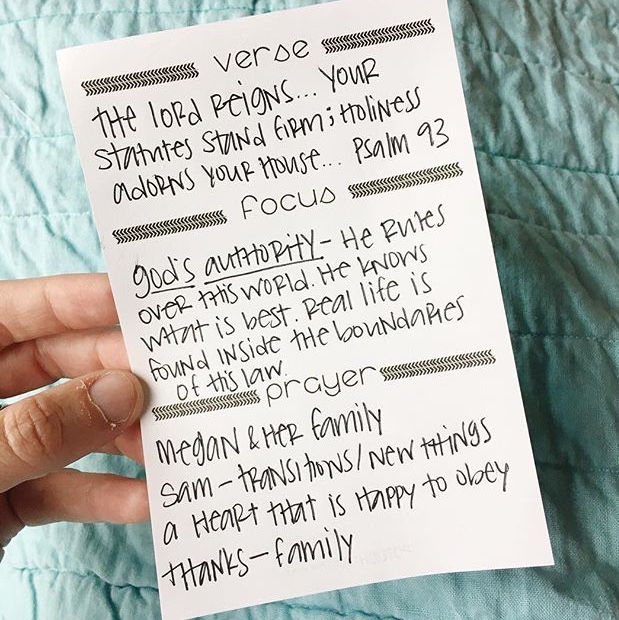 verse
THE LORD REIGNS... YOUR
STATUTES STAND FIRM; HOLINESS
ADORNS YOUR HOUSE... PSALM 93
focus
GOD'S AUTHORITY - HE RULES
OVER THIS WORLD. HE KNOWS
WHAT IS BEST. REAL LIFE IS
FOUND INSIDE THE BOUNDARIES
OF THIS LAW.
prayer
MEGAN & HER FAMILY
SAM - TRANSITIONS/NEW THINGS
A HEART THAT IS HAPPY TO OBEY
THANKS - FAMILY